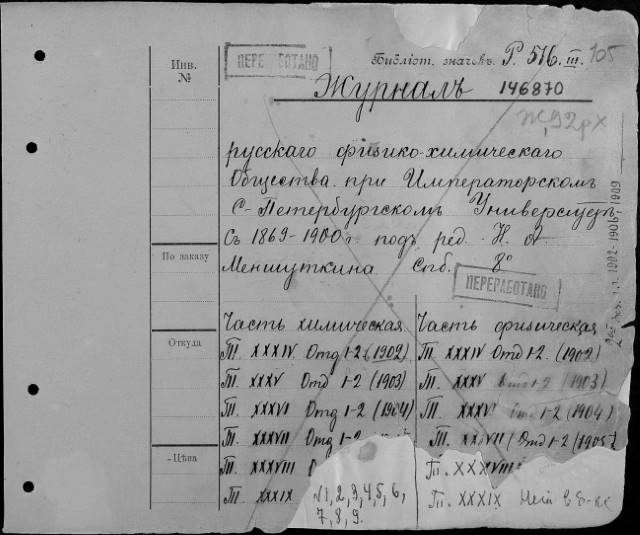 ПЕРЕРАБОТАНО
Библіот. значекъ P. 516. III. 105
Инв.
№
Журналъ 146870
русскаго физико-химическаго
Общества при Императорскомъ
С-Петербургскомъ Университ.
Съ 1869-1900 г подъ ред. Н. А.
По заказу
Меншуткина Спб. 8°
ПЕРЕРАБОТАНО
1902-1906, 1909
Часть химическая
Откуда
Т. XXXIV Отд 1-2 (1902)
Т. XXXV Отд 1-2 (1903)
Т. XXXVI Отд 1-2 (1904)
Т. XXXVII Отд 1-2
Цѣна
Т. XXXVIII
Т. XXXIX N1, 2, 3, 4, 5, 6,
7, 8, 9.
Часть физическая
Т. XXXIV Отд 1-2. (1902)
Т. XXXV Отд 1-2 (1903)
Т. XXXVI Отд 1-2 (1904)
Т. XXXVII Отд 1-2 (1905)
Т. XXXVIII
Т. XXXIX